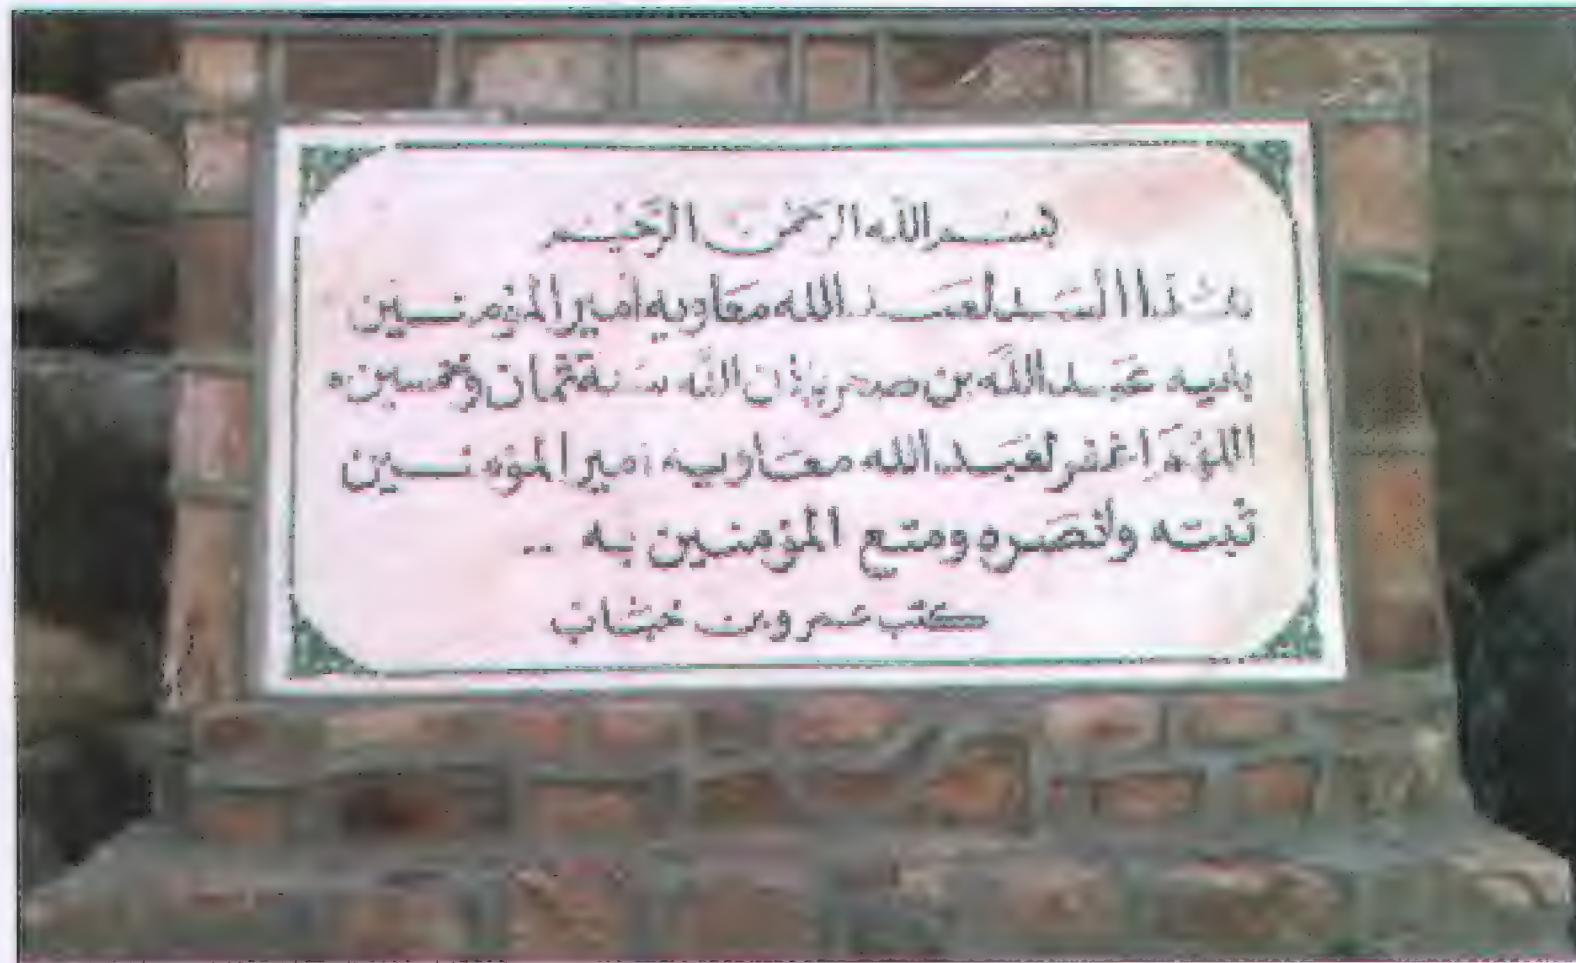 بسم الله الرحمن الرحيم
هذا السد لعبد الله معاويه أمير المؤمنين
بنيه عبد الله بن صخر بإذن الله سنة ثمان وخمسين ه
اللهم اغفر لعبد الله معاويه امير المؤمنين
ثبته وانصره ومتع المؤمنين به ..
كتب عمرو بن حباب